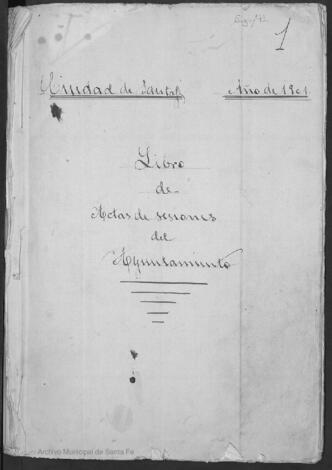 1
Ciudad de Santafé
Año de 1901
Libro
de
Actas de sesiones
del
Ayuntamiento
Archivo Municipal de Santa Fe